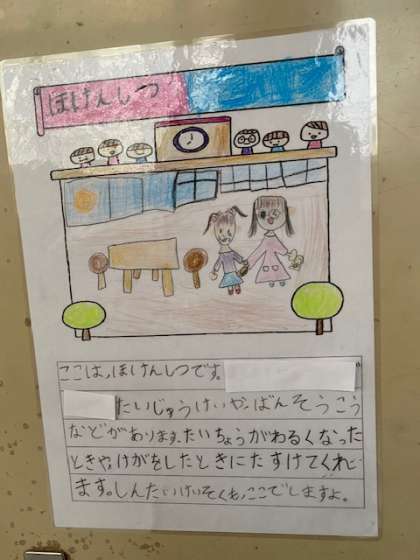 ほけんしつ
ここは、ほけんしつです。
たいじゅうけいや、ばんそうこう
などがあります。たいちょうがわるくなった
ときや、けがをしたときにたすけてくれ
ます。しんたいけいそくも、ここでしますよ。